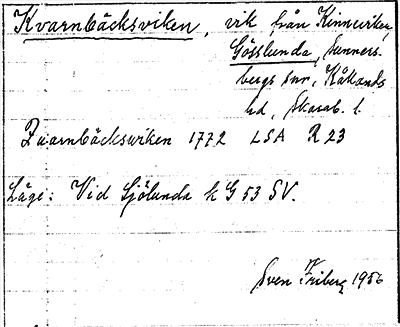 Kvarnbäcksviken, vik från Kinneviken,
Gösslunda, Sunners-
bergs snr, Kållands
hd, Skarab. l.
Quarnbäckswiken 1772 LSA R 23
Läge: Vid Sjölunda k G 53 SV.
Sven Friberg 1956